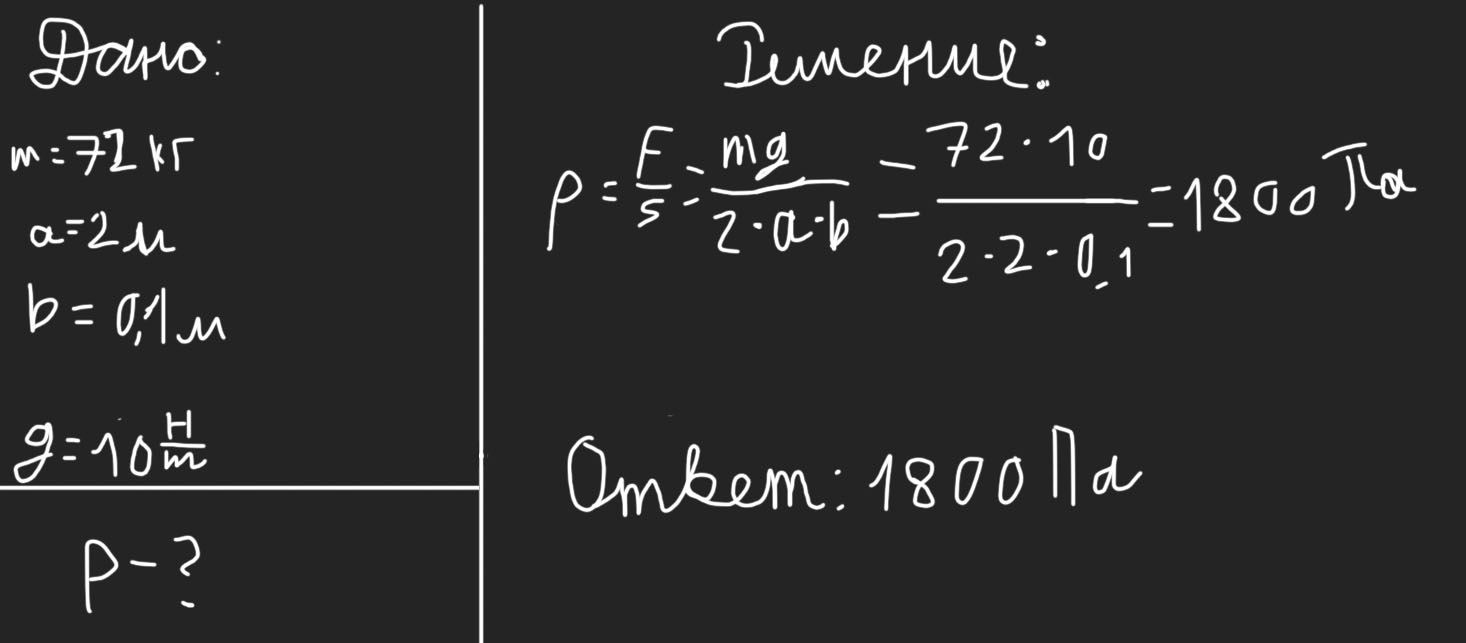 Дано:
m = 72 кг
a = 2 м
b = 0,1 м
g = 10 Н/m
p - ?
Решение:
p = F/s = mg/2·a·b = 72·10/2·2·0,1 = 1800 Па
Ответ: 1800 Па